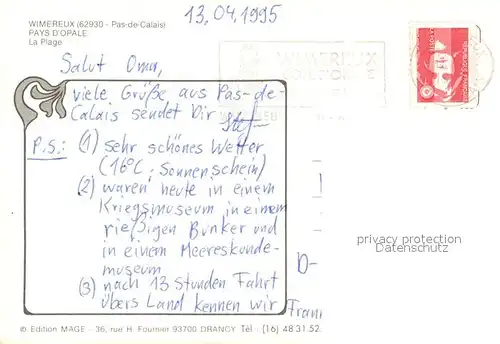 WIMEREUX (62930 - Pas-de-Calais)
PAYS D'OPALE
La Plage
13.04.1995
WIMEREUX
Salut Oma,
viele Grüße aus Pas-de-
Calais sendet Dir
P.S.: (1) sehr schönes Wetter
(16°C; Sonnenschein)
(2) waren heute in einem
Kriegsmuseum in einem
rießigen Bunker und
in einem Meereskunde-
museum
(3) nach 13 Stunden Fahrt
übers Land kennen wir Fran
D-
privacy protection
Datenschutz
© Edition MAGE - 36, rue H. Fournier 93700 DRANCY Tél : (16) 48.31.52.